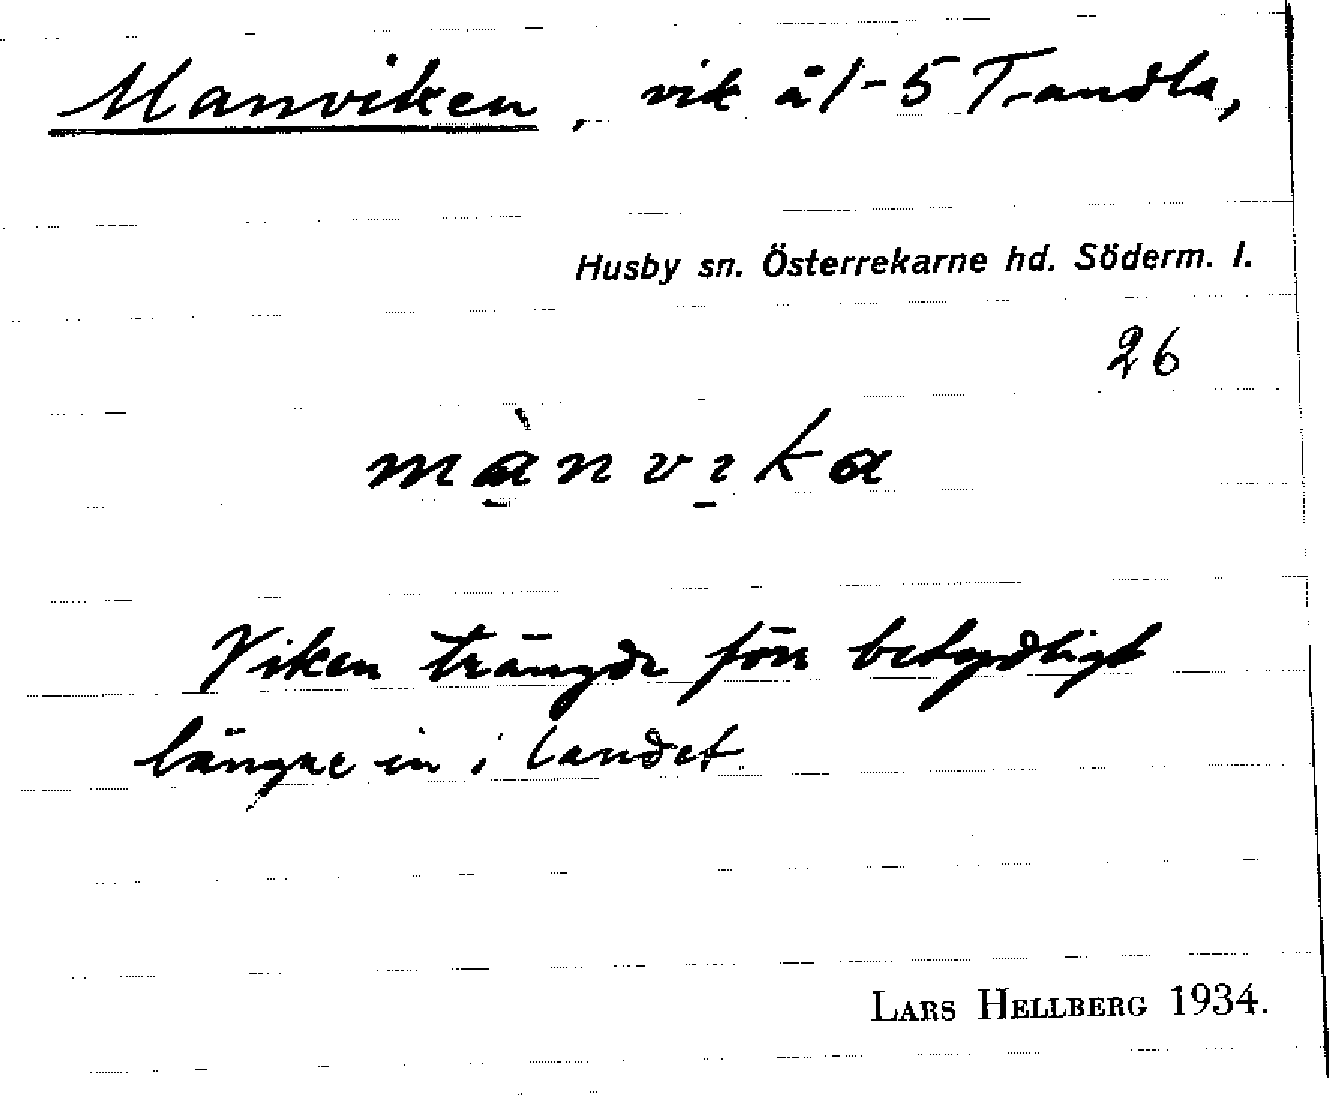 Manviken, vik å 1-5 Trandla,
Husby sn. Österrekarne hd. Söderm. l.
26
mànvika
Viken trängde förr betydligt
längre in i landet.
LARS HELLBERG 1934.